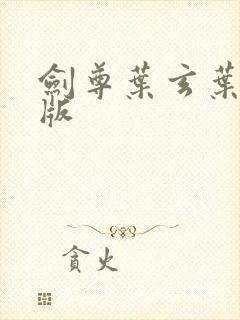 劍尊葉玄葉
版
貪火